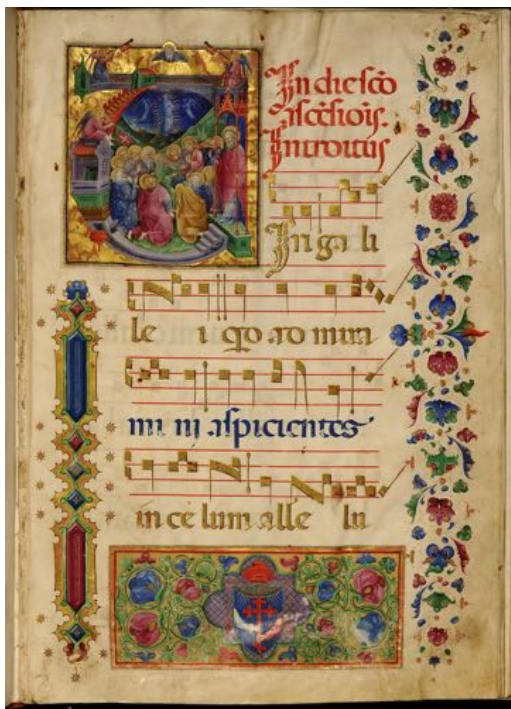 In die scō
ascēsiōis.
Introitus
Iri ga li
le i qo ad mira
mi ni aspicientes
in ce lum alle lu